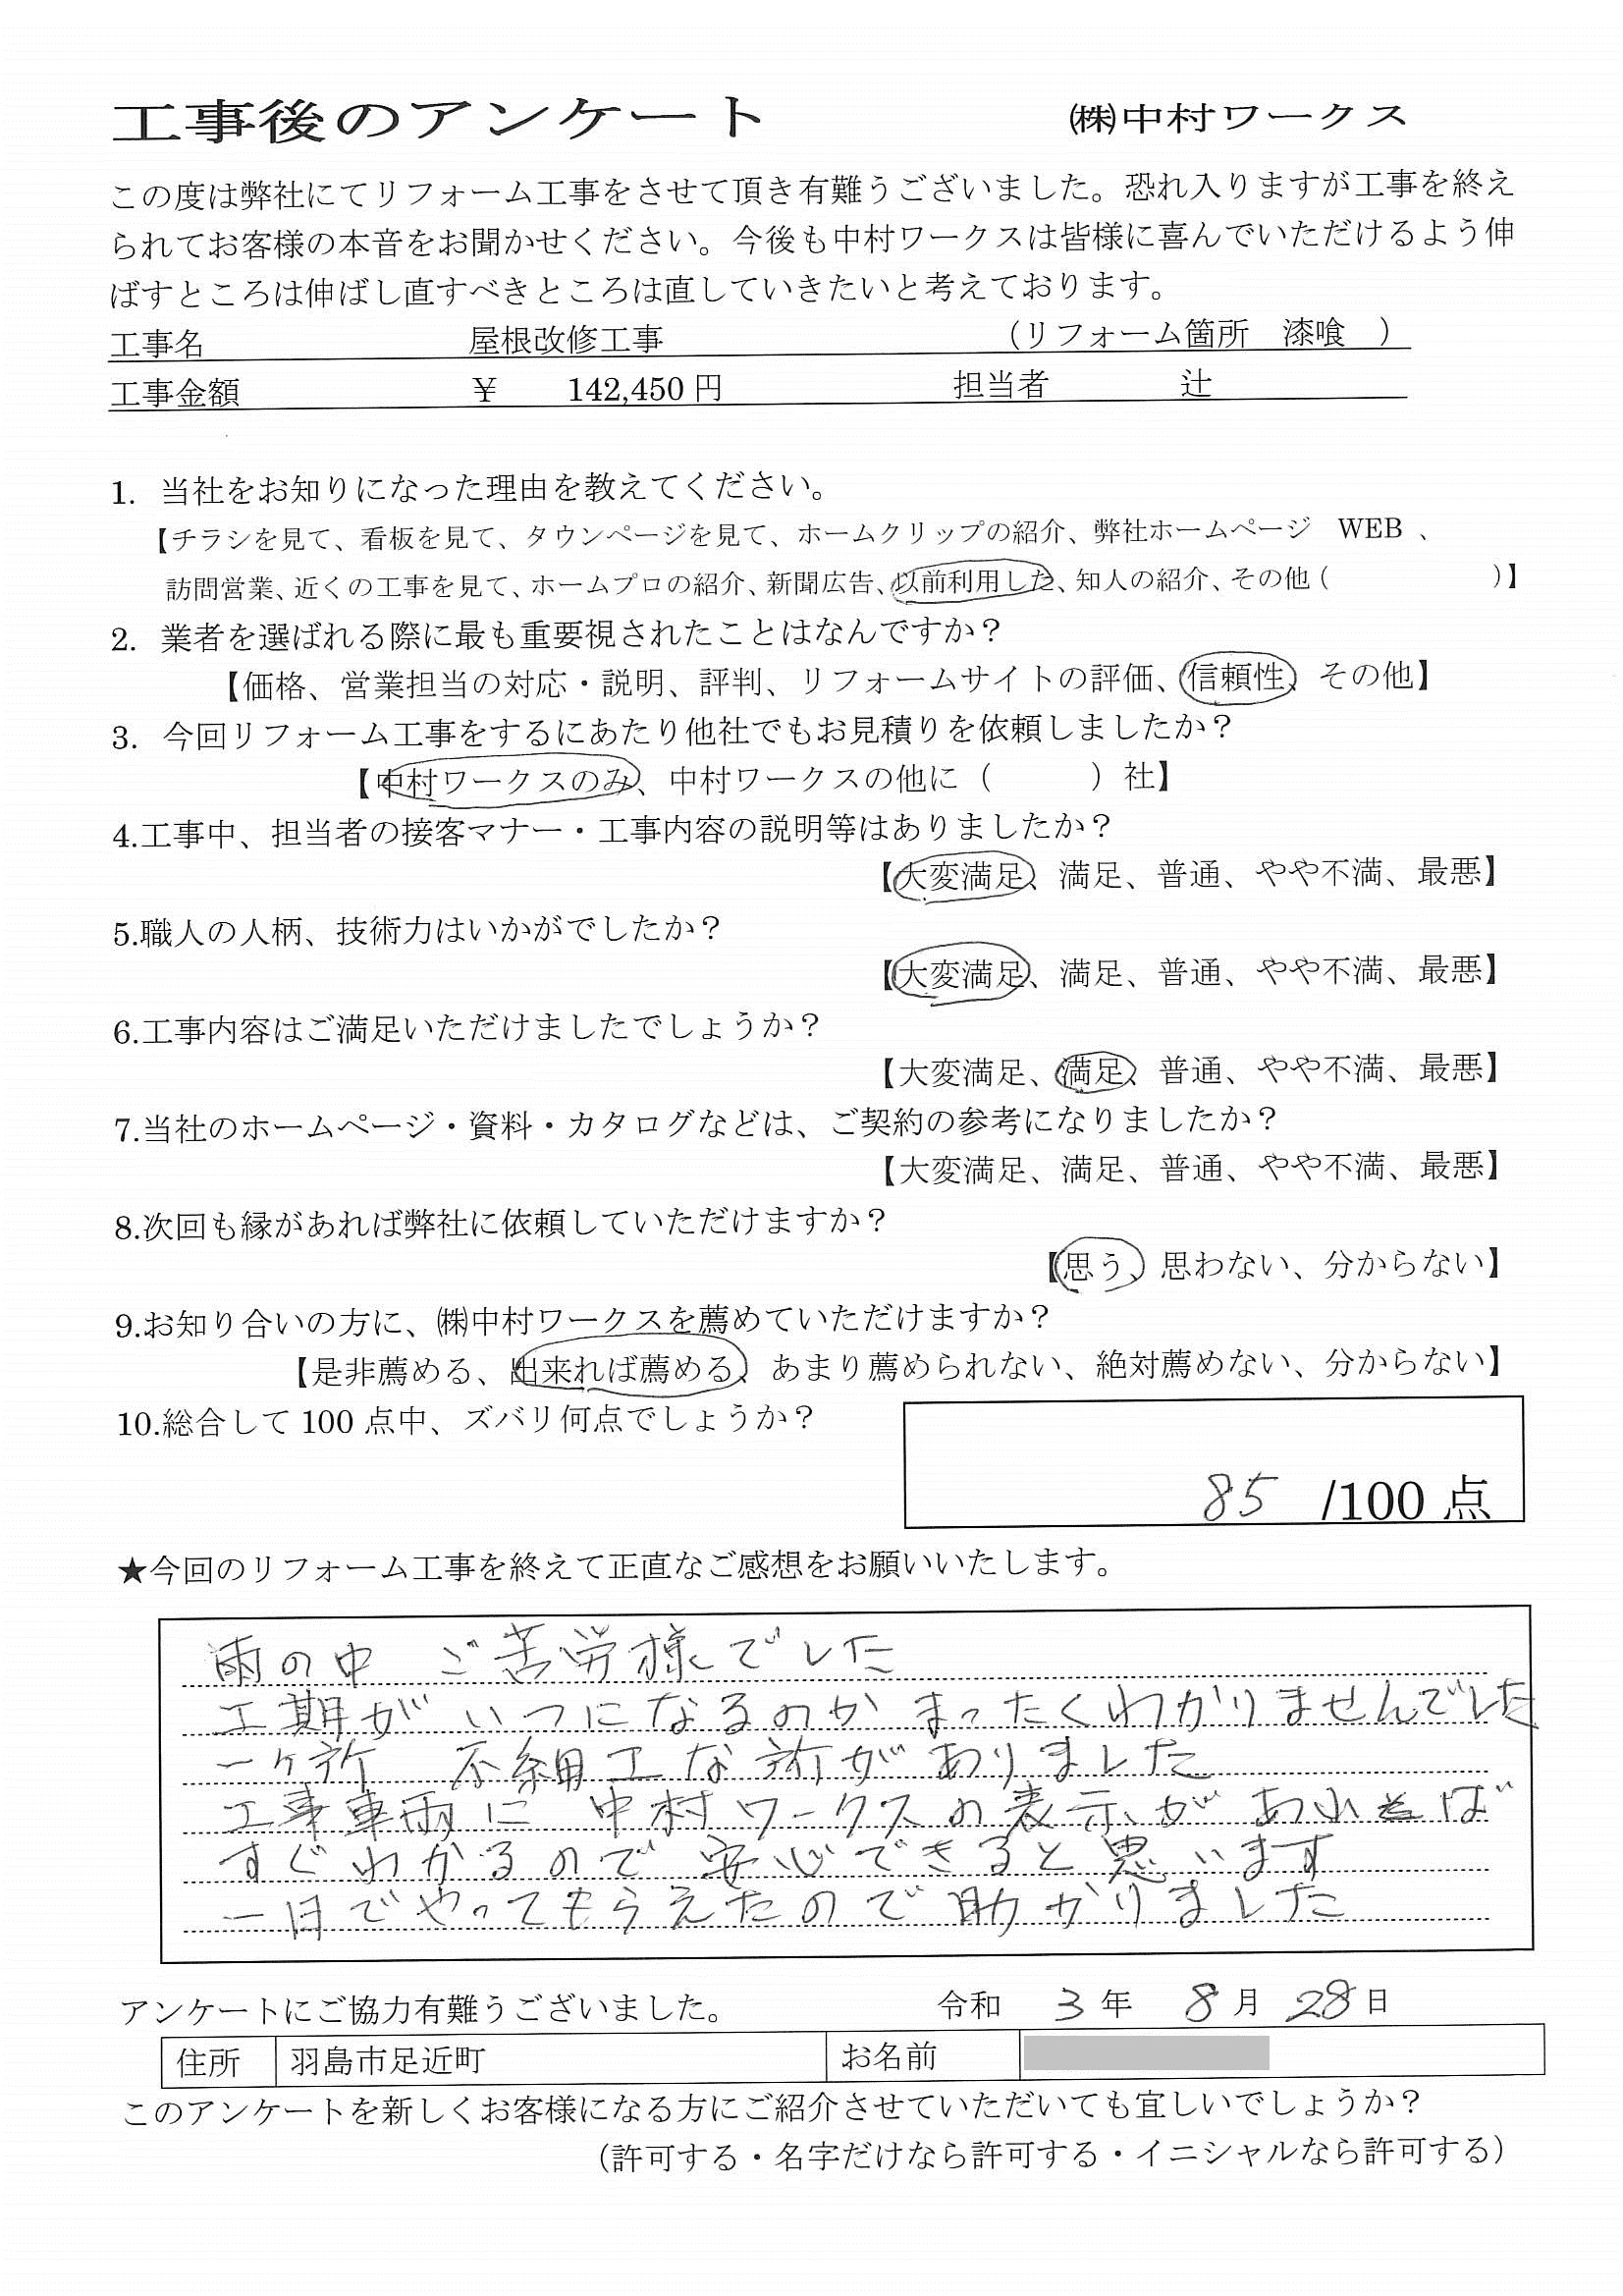 工事後のアンケート ㈱中村ワークス
この度は弊社にてリフォーム工事をさせて頂き有難うございました。恐れ入りますが工事を終え
られてお客様の本音をお聞かせください。今後も中村ワークスは皆様に喜んでいただけるよう伸
ばすところは伸ばし直すべきところは直していきたいと考えております。
工事名 屋根改修工事 (リフォーム箇所 漆喰 )
工事金額 ¥ 142,450円 担当者 辻
1. 当社をお知りになった理由を教えてください。
【チラシを見て、看板を見て、タウンページを見て、ホームクリップの紹介、弊社ホームページ WEB 、
訪問営業、近くの工事を見て、ホームプロの紹介、新聞広告、以前利用した、知人の紹介、その他( )】
2. 業者を選ばれる際に最も重要視されたことはなんですか?
【価格、営業担当の対応・説明、評判、リフォームサイトの評価、信頼性、その他】
3. 今回リフォーム工事をするにあたり他社でもお見積りを依頼しましたか?
【中村ワークスのみ、中村ワークスの他に( )社】
4.工事中、担当者の接客マナー・工事内容の説明等はありましたか?
【大変満足、満足、普通、やや不満、最悪】
5.職人の人柄、技術力はいかがでしたか?
【大変満足、満足、普通、やや不満、最悪】
6.工事内容はご満足いただけましたでしょうか?
【大変満足、満足、普通、やや不満、最悪】
7.当社のホームページ・資料・カタログなどは、ご契約の参考になりましたか?
【大変満足、満足、普通、やや不満、最悪】
8.次回も縁があれば弊社に依頼していただけますか?
【思う、思わない、分からない】
9.お知り合いの方に、㈱中村ワークスを薦めていただけますか?
【是非薦める、出来れば薦める、あまり薦められない、絶対薦めない、分からない】
10.総合して100点中、ズバリ何点でしょうか?
85 /100点
★今回のリフォーム工事を終えて正直なご感想をお願いいたします。
雨の中 ご苦労様でした
工期がいつになるのかまったくわかりませんでした
一ヶ所 不細工な所がありました
工事車両に中村ワークスの表示があれば
すぐわかるので安心できると思います
一日でやってもらえたので助かりました
アンケートにご協力有難うございました。 令和 3年 8月 28日
住所 羽島市足近町 お名前
このアンケートを新しくお客様になる方にご紹介させていただいても宜しいでしょうか?
(許可する・名字だけなら許可する・イニシャルなら許可する)